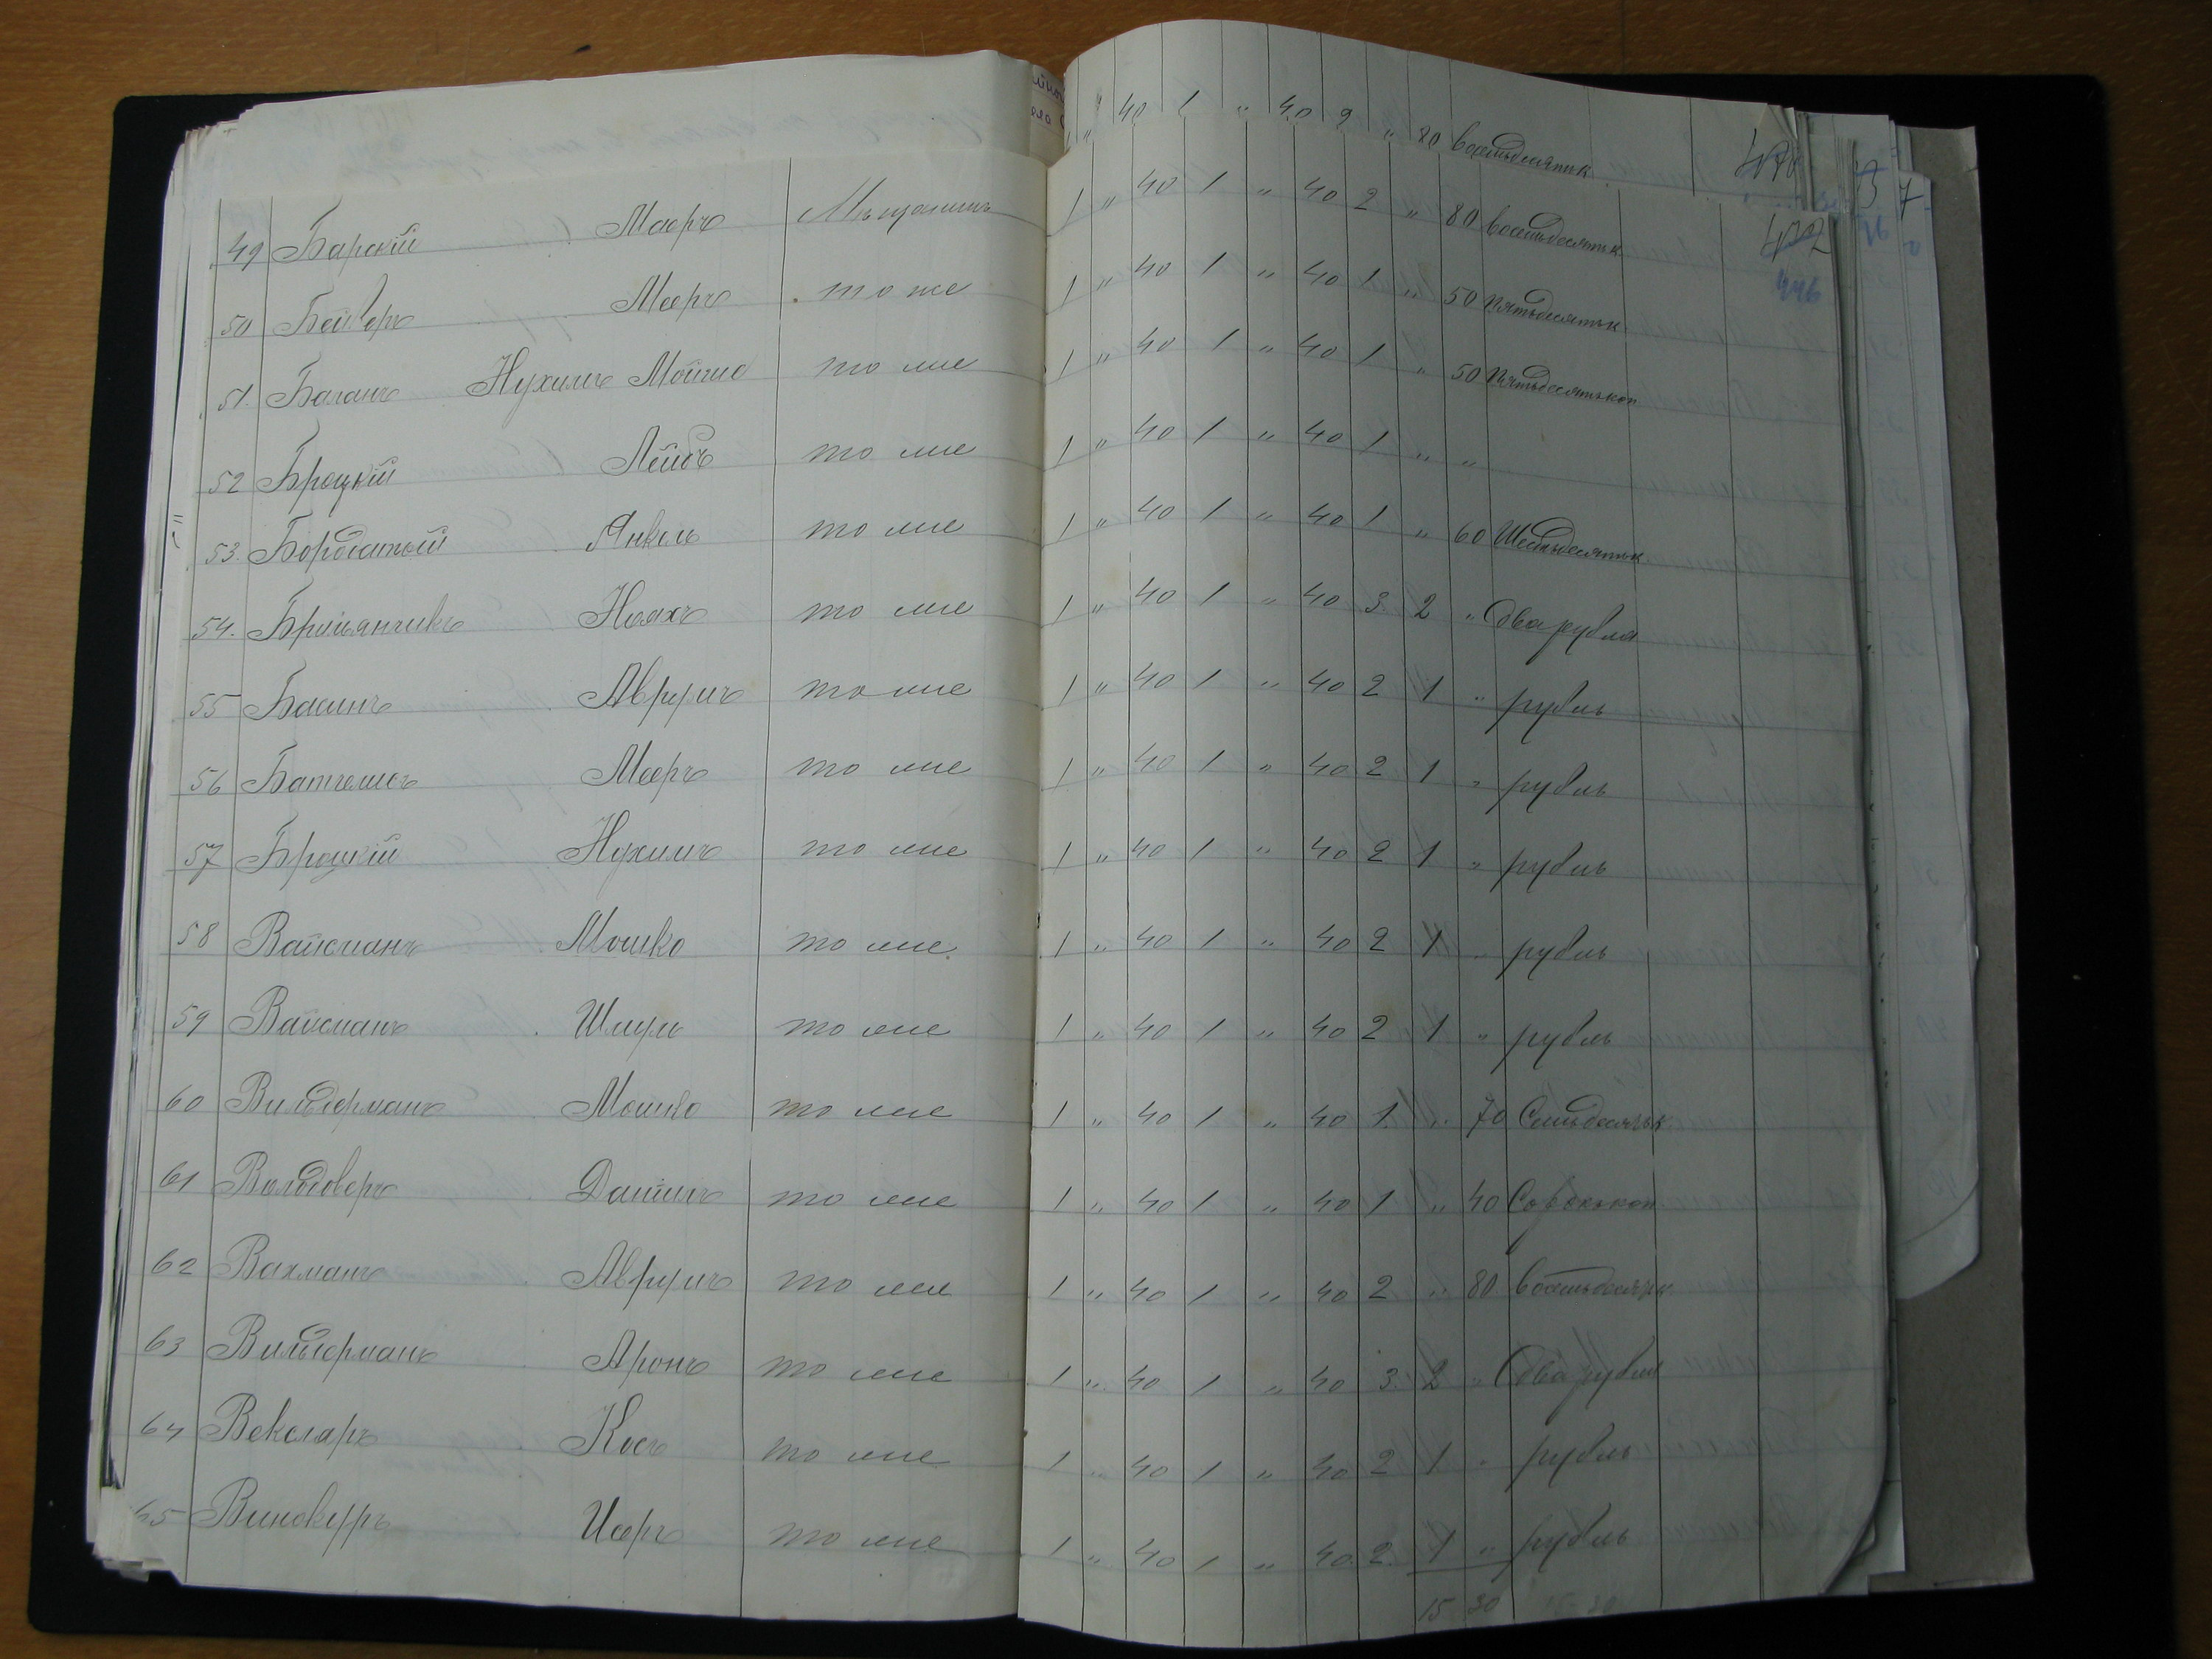 1 " 40 1 " 40 2 " 80 восемьдесятк
49 Барскій Маеръ Мѣщанинъ 1 " 40 1 " 40 2 " 80 восемьдесятк
50 Бейверъ Мееръ то же 1 " 40 1 " 40 1 " 50 пятьдесятък
51. Баланъ Нухимъ Мойше то же 1 " 40 1 " 40 1 " 50 пятьдесятъкоп
52 Бродкій Лейбъ то же 1 " 40 1 " 40 1 " "
53. Бородатый Янкель то же 1 " 40 1 " 40 1 " 60 Шестьдесятък
54. Ноахъ то же 1 " 40 1 " 40 3 2 " два рубля
55 Басинъ Аврумъ то же 1 " 40 1 " 40 2 1 " рубль
56 Мееръ то же 1 " 40 1 " 40 2 1 " рубль
57 Нухимъ то же 1 " 40 1 " 40 2 1 " рубль
58 Вайсманъ Мошко то же 1 " 40 1 " 40 2 1 " рубль
59 Вайсманъ Шмуль то же 1 " 40 1 " 40 2 1 " рубль
60 Вильдерманъ Мошко то же 1 " 40 1 " 40 1 " 70 Семьдесятък
61 Вальдоверъ Даніилъ то же 1 " 40 1 " 40 1 " 40 Сороккоп
62 Вахманъ Аврумъ то же 1 " 40 1 " 40 2 " 80 восемьдесятк
63 Вильдерманъ Аронъ то же 1 " 40 1 " 40 3 2 " два рубля
64 Векслеръ Кось то же 1 " 40 1 " 40 2 1 " рубль
65 Винокуръ Исеръ то же 1 " 40 1 " 40 2 1 " рубль
15 30